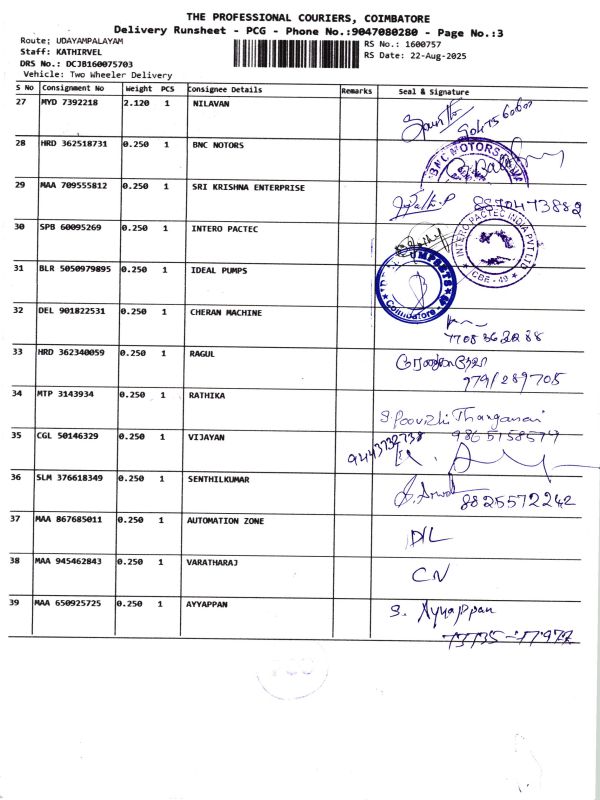 THE PROFESSIONAL COURIERS, COIMBATORE
Delivery Runsheet - PCG - Phone No.:9047080280 - Page No.:3
Route: UDAYAMPALAYAM
Staff: KATHIRVEL
DRS No.: DCJB160075703
Vehicle: Two Wheeler Delivery
RS No.: 1600757
RS Date: 22-Aug-2025
S No Consignment No Weight PCS Consignee Details Remarks Seal & Signature
27 MYD 7392218 2.120 1 NILAVAN
28 HRD 362518731 0.250 1 BNC NOTORS
BNC MOTORS
29 MAA 709555812 0.250 1 SRI KRISHNA ENTERPRISE
8870473882
30 SPB 60095269 0.250 1 INTERO PACTEC
INTERO PACTEC INDIA PVT LTD
CBE - 49
31 BLR 5050979895 0.250 1 IDEAL PUMPS
Coimbatore - 49
32 DEL 901822531 0.250 1 CHERAN MACHINE
33 HRD 362340059 0.250 1 RAGUL
979/289705
34 MTP 3143934 0.250 1 RATHIKA
35 CGL 50146329 0.250 1 VIJAYAN
9865158579
36 SLM 376618349 0.250 1 SENTHILKUMAR
8825572242
37 MAA 867685011 0.250 1 AUTOMATION ZONE
D/L
38 MAA 945462843 0.250 1 VARATHARAJ
CN
39 MAA 650925725 0.250 1 AYYAPPAN
S. Ayyappan